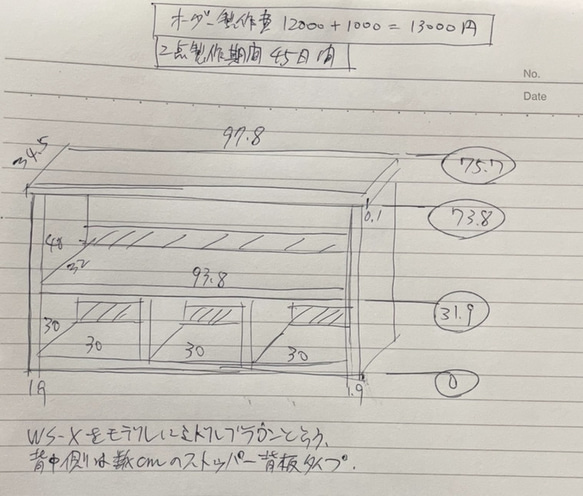 オーダー製作費 12000+1000=13000円
2点製作期間 45日間
No.
Date
97.8
34.5
75.7
0.1
73.8
32
93.8
31.9
30
30 30 30
0
1.9 1.9
WS-Xをモデルにミドルブラウン
背中側は数cmのストッパー背板タイプ.